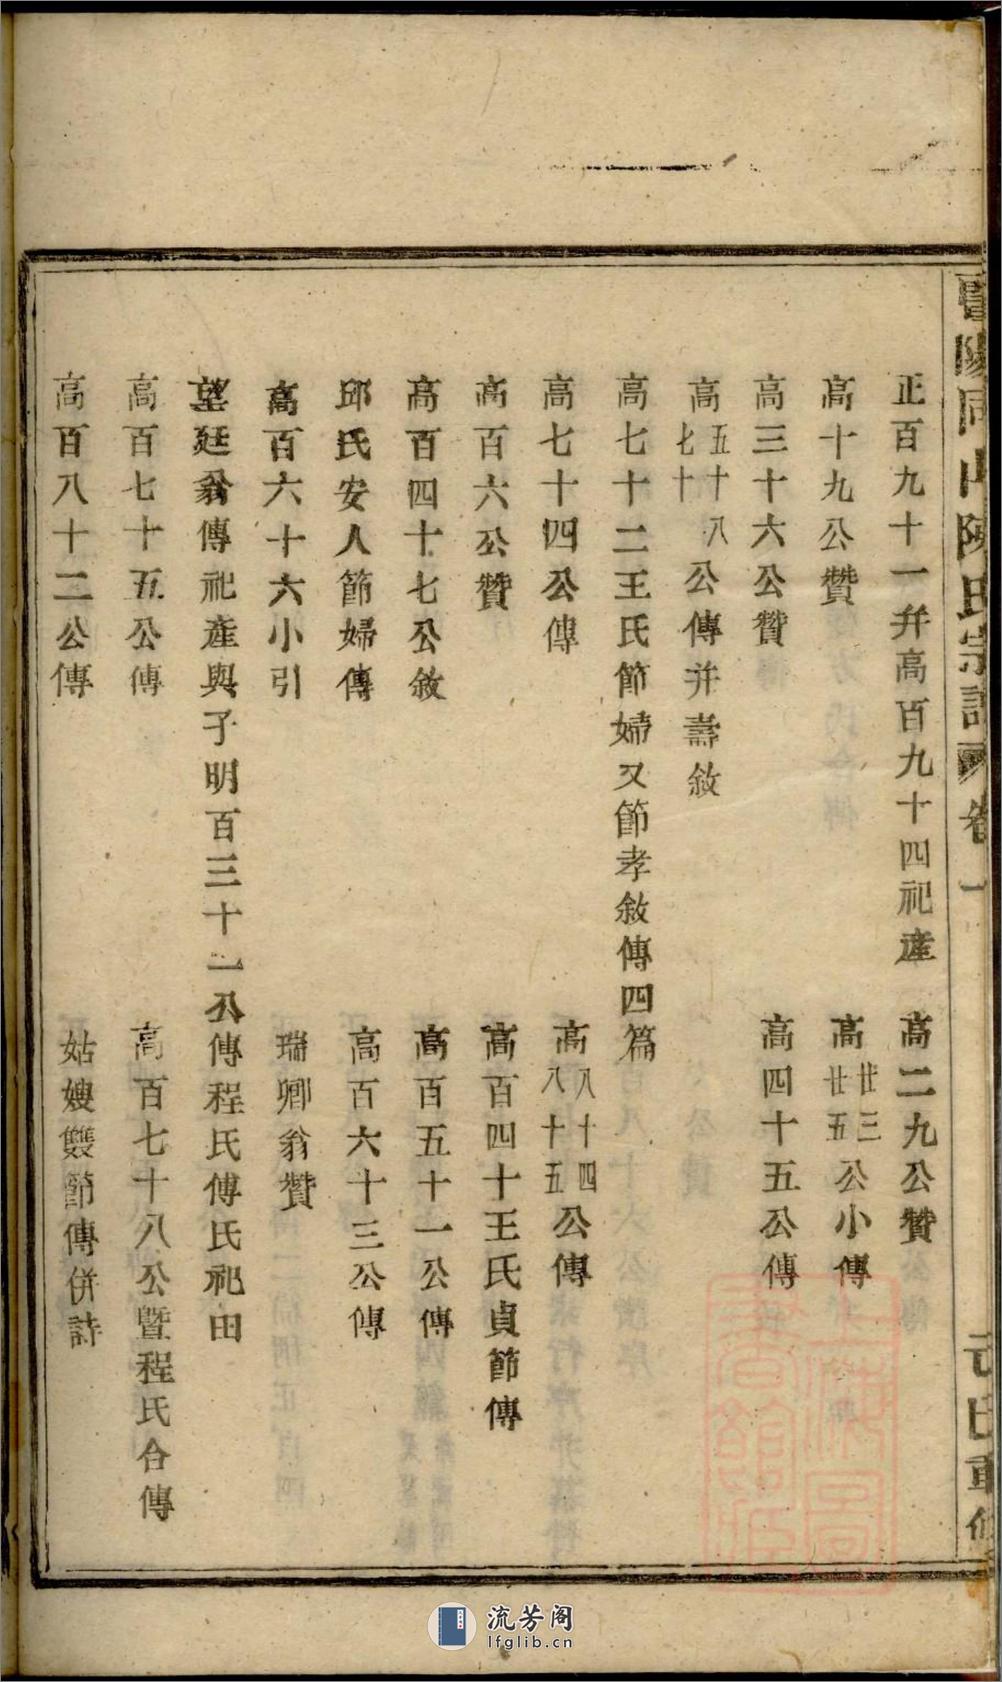 陽同山陳氏宗譜
卷一
民重修
正百九十一幷高百九十四祀產
高二九公贊
高十九公贊
高廿三廿五公小傳
高三十六公贊
高四十五公傳
高五十八七十公傳并壽敘
高七十二王氏節婦又節孝敘傳四篇
高七十四公傳
高八十四八十五公傳
高百六公贊
高百四十王氏貞節傳
高百四十七公敘
高百五十一公傳
邱氏安人節婦傳
高百六十三公傳
高百六十六小引
瑞卿翁贊
望廷翁傳祀產與子明百三十一公傳程氏傅氏祀田
高百七十五公傳
高百七十八公暨程氏合傳
高百八十二公傳
姑嫂雙節傳併詩
上海圖書館藏
流芳阁
lfglib.cn